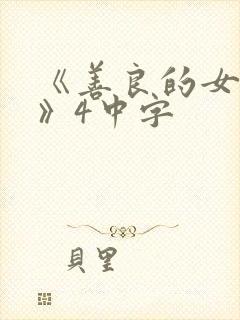 《善良的女
》4中字
貝里